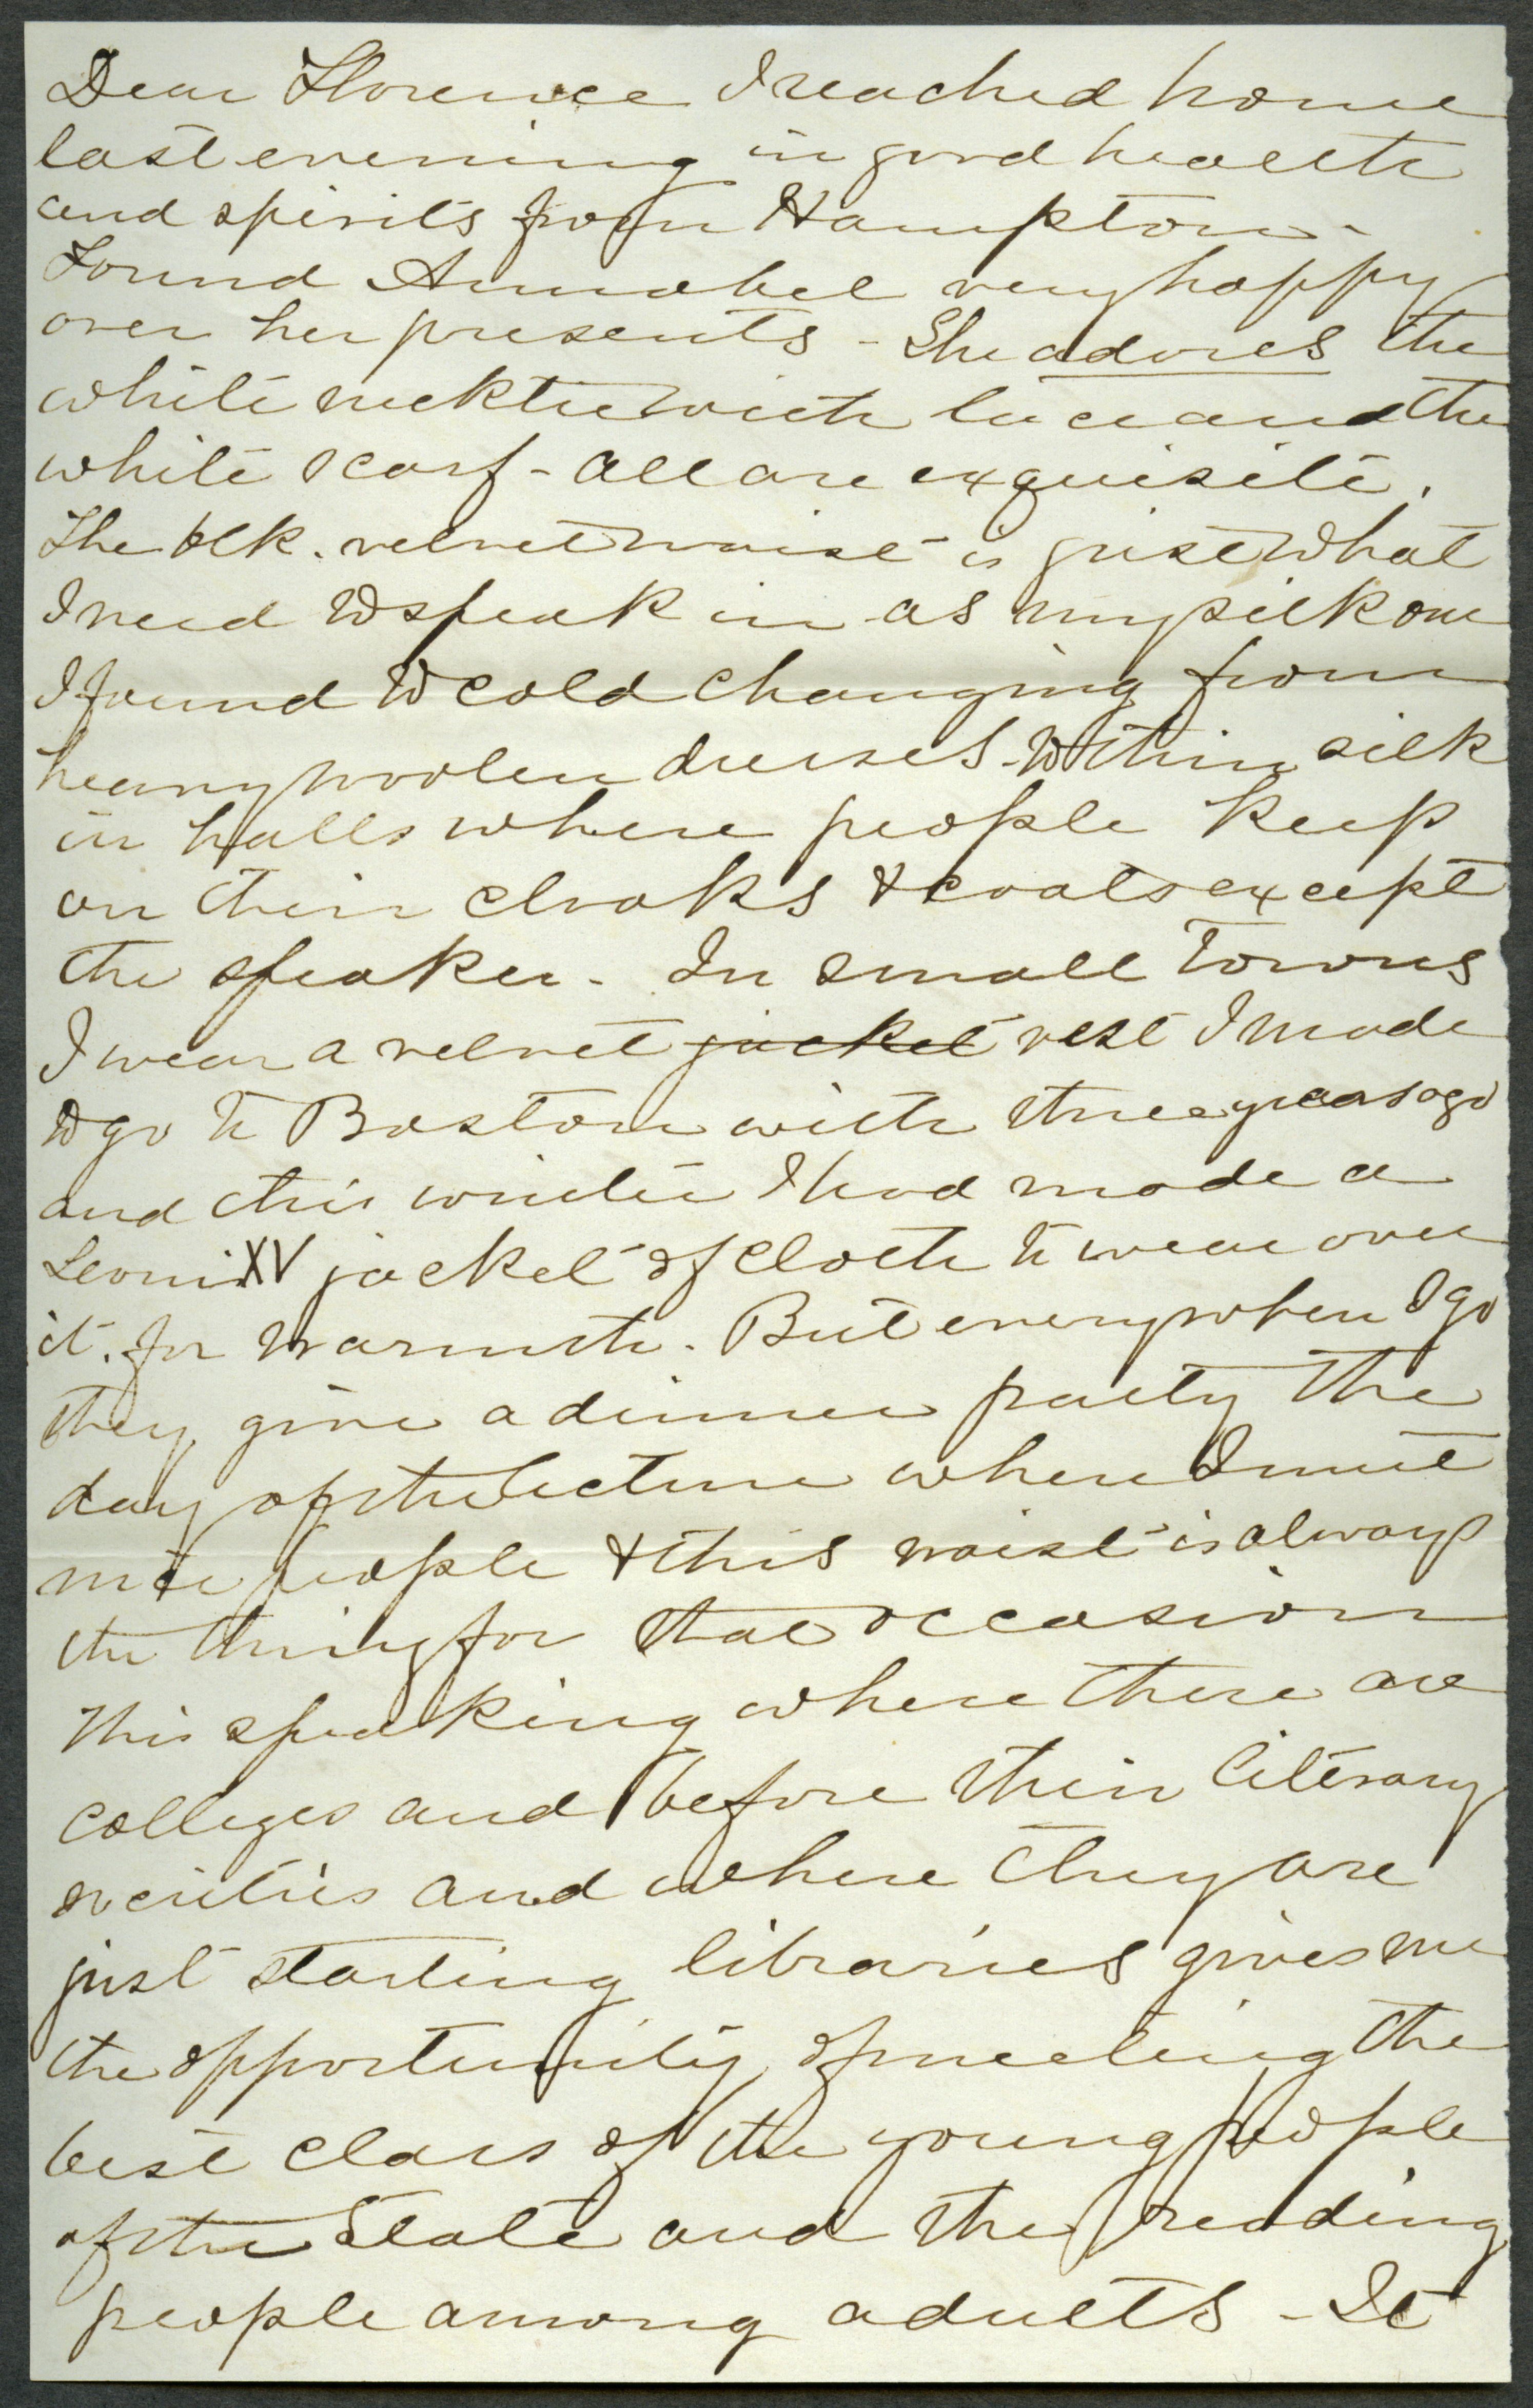 Dear Florence I reached home
last evening in good health
and spirits from Hampton -
Found Annabel very happy
over her presents - She adores the
white necktie with lace and the
white scarf - all are exquisite.
The blk. velvet waist is just what
I need to speak in as my silk one
I found to cold changing from
heavy woolen dresses to thin silk
in halls where people keep
on their cloaks & coats except
the speaker. In small towns
I wear a velvet jacket vest I made
to go to Boston with three years ago
and this winter I had made a
Louis XV jacket of cloth to wear over
it. for warmth. But everywhere I go
they give a dinner party the
day of the lecture where I meet
nice people & this waist is always
the thing for that occasion
This speaking where there are
colleges and before their literary
societies and where they are
just starting libraries gives me
the opportunity of meeting the
best class of the young people
of the State and the reading
people among adults - It